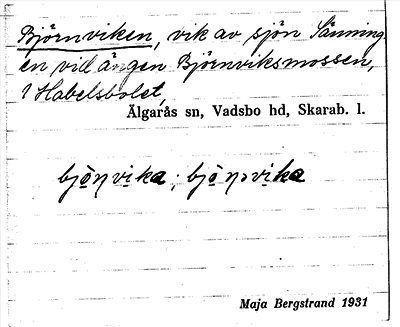 Björnviken, vik av sjön Sänning
en vid ängen Björnviksmossen,
i Habelsbolet,
Älgarås sn, Vadsbo hd, Skarab. l.
bjö̀ṇvika; bjö̀ṇəvika
Maja Bergstrand 1931